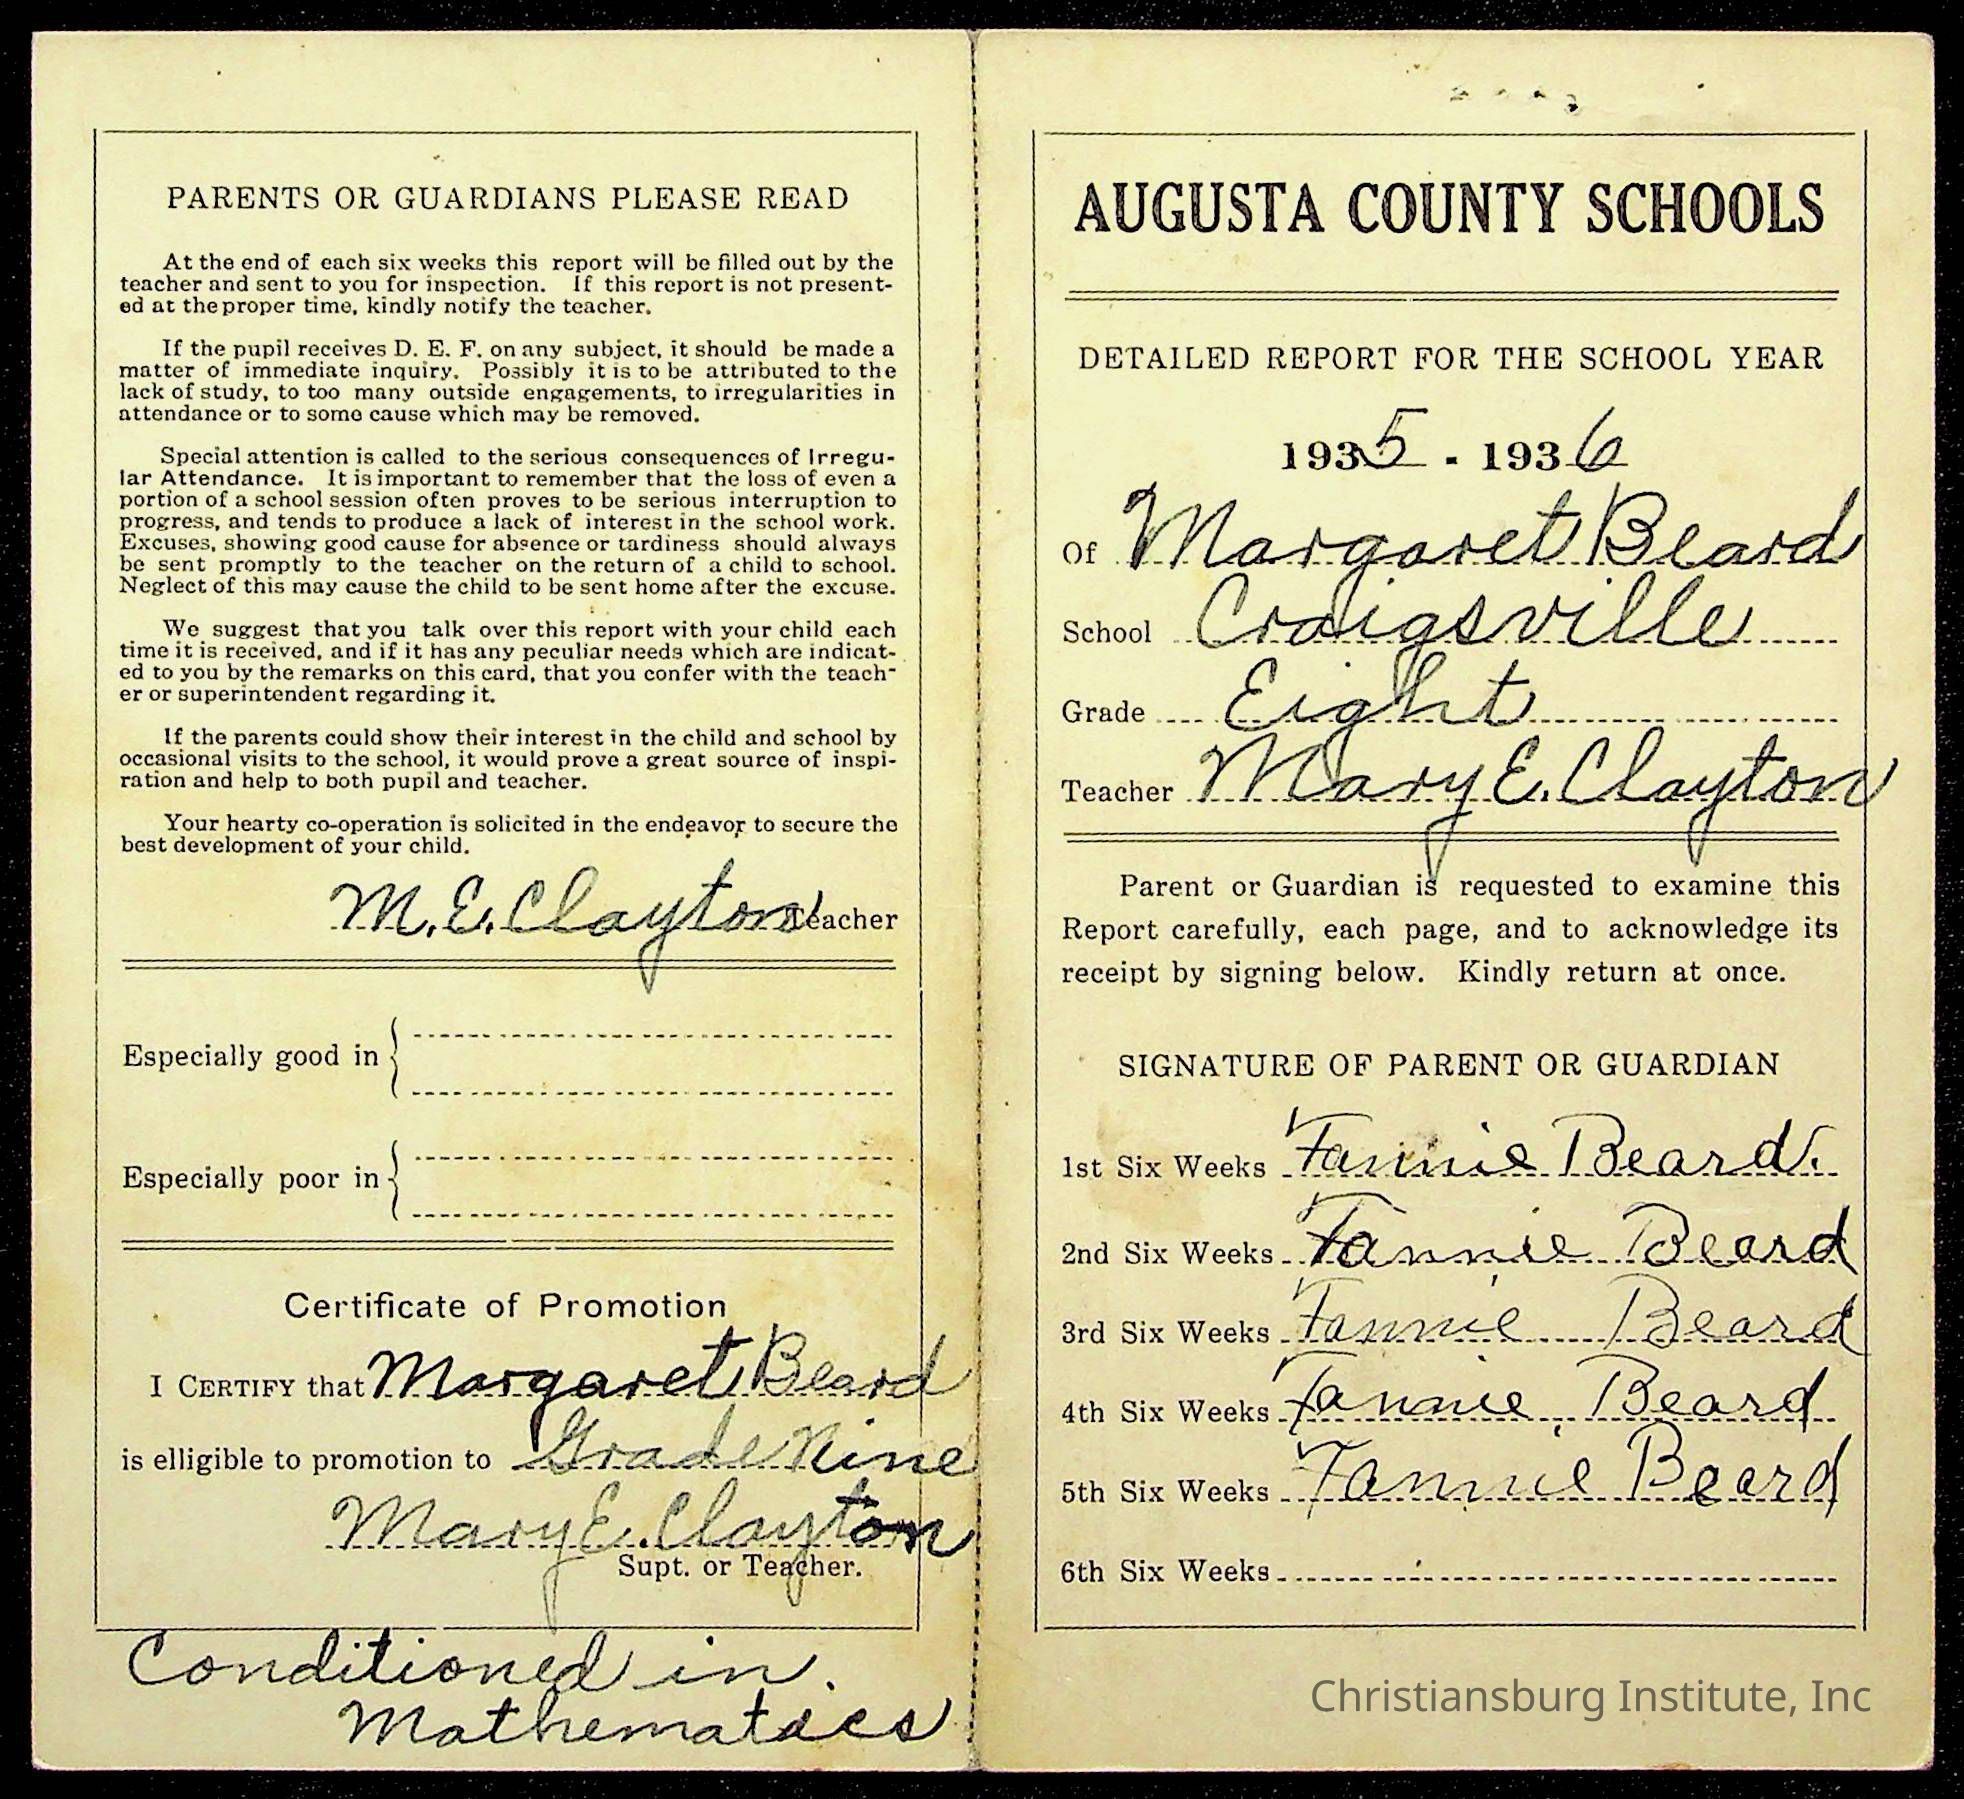 PARENTS OR GUARDIANS PLEASE READ
At the end of each six weeks this report will be filled out by the
teacher and sent to you for inspection. If this report is not present-
ed at the proper time, kindly notify the teacher.
If the pupil receives D. E. F. on any subject, it should be made a
matter of immediate inquiry. Possibly it is to be attributed to the
lack of study, to too many outside engagements, to irregularities in
attendance or to some cause which may be removed.
Special attention is called to the serious consequences of Irregu-
lar Attendance. It is important to remember that the loss of even a
portion of a school session often proves to be serious interruption to
progress, and tends to produce a lack of interest in the school work.
Excuses, showing good cause for absence or tardiness should always
be sent promptly to the teacher on the return of a child to school.
Neglect of this may cause the child to be sent home after the excuse.
We suggest that you talk over this report with your child each
time it is received, and if it has any peculiar needs which are indicat-
ed to you by the remarks on this card, that you confer with the teach-
er or superintendent regarding it.
If the parents could show their interest in the child and school by
occasional visits to the school, it would prove a great source of inspi-
ration and help to both pupil and teacher.
Your hearty co-operation is solicited in the endeavor to secure the
best development of your child.
M. E. Clayton Teacher
Especially good in
Especially poor in
Certificate of Promotion
I CERTIFY that Margaret Beard
is elligible to promotion to Grade Nine
Mary E. Clayton
Supt. or Teacher.
Conditioned in.
Mathematics
AUGUSTA COUNTY SCHOOLS
DETAILED REPORT FOR THE SCHOOL YEAR
1935 - 1936
Of Margaret Beard
School Craigsville
Grade Eight
Teacher Mary E. Clayton
Parent or Guardian is requested to examine this
Report carefully, each page, and to acknowledge its
receipt by signing below. Kindly return at once.
SIGNATURE OF PARENT OR GUARDIAN
1st Six Weeks Fannie Beard.
2nd Six Weeks Fannie Beard
3rd Six Weeks Fannie Beard
4th Six Weeks Fannie Beard
5th Six Weeks Fannie Beard
6th Six Weeks
Christiansburg Institute, Inc